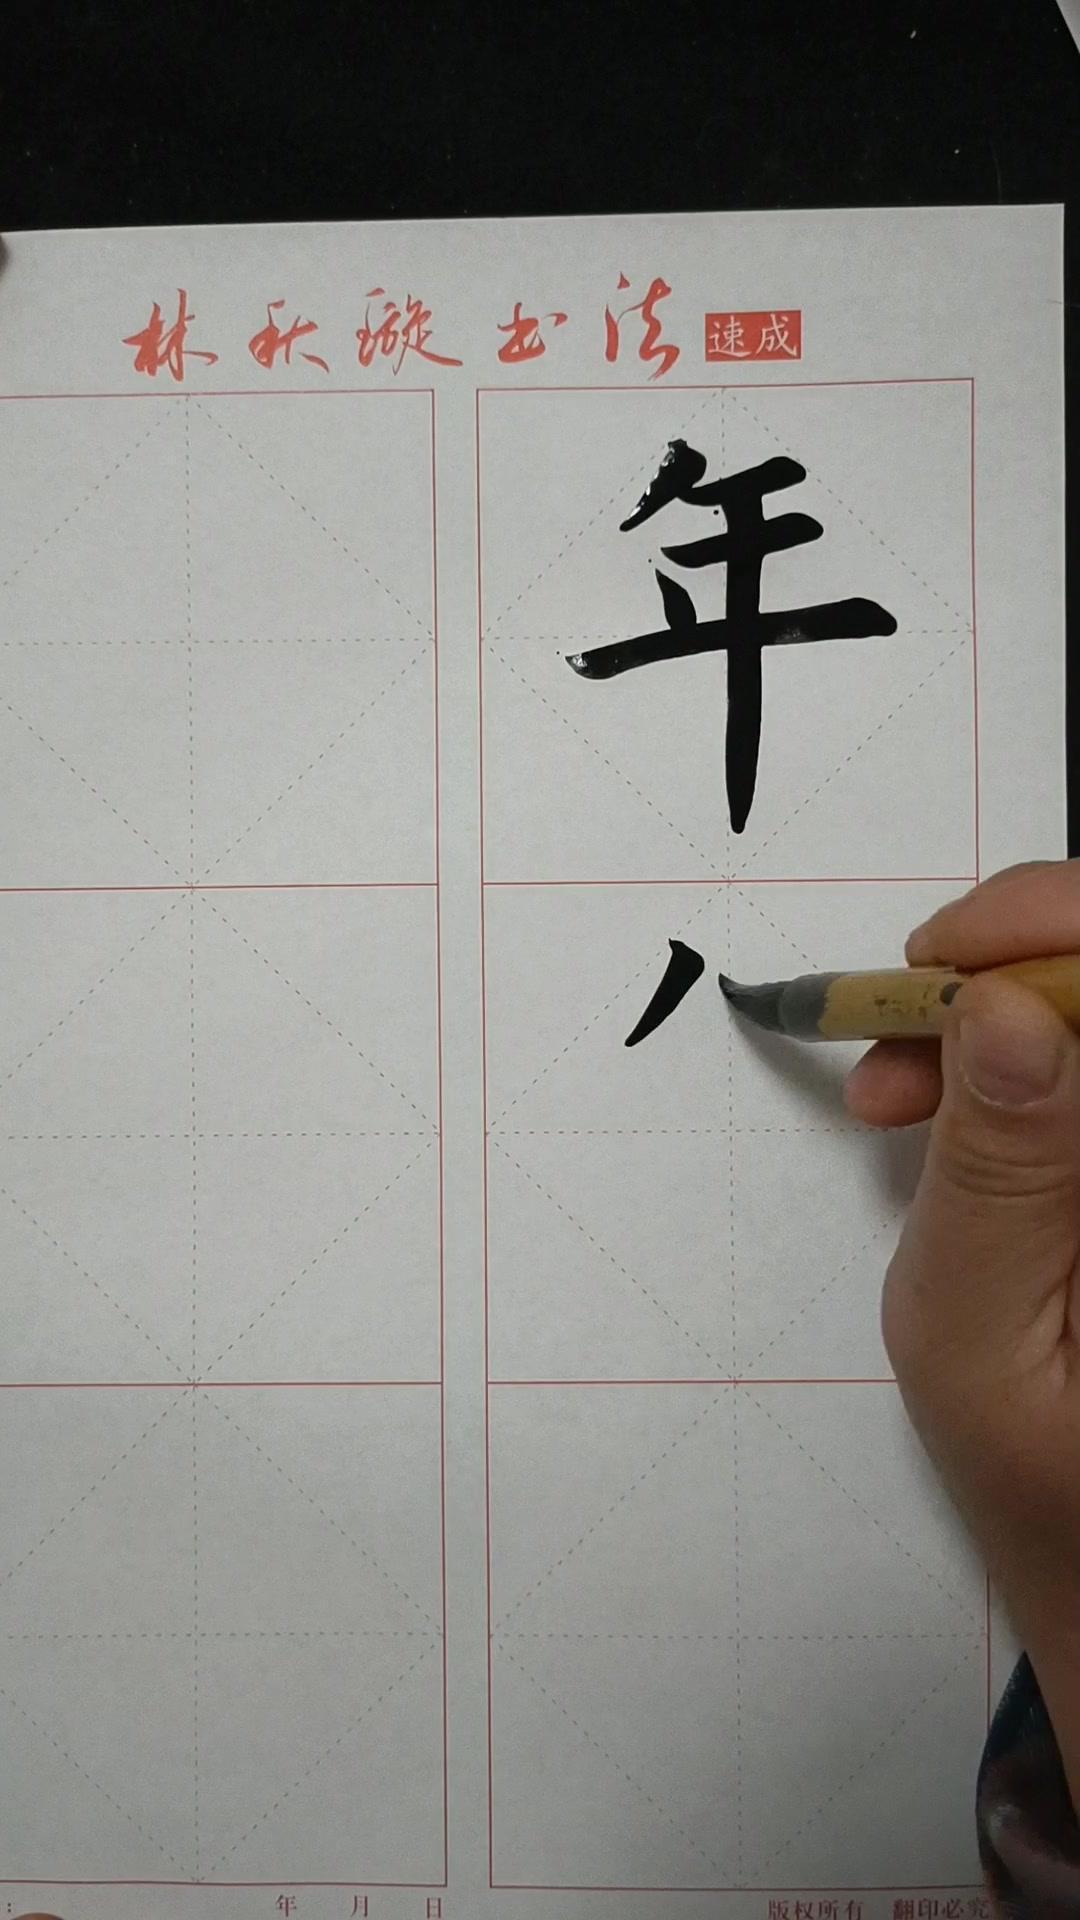 林秋璇书法 速成
年
年 月 日
版权所有 翻印必究